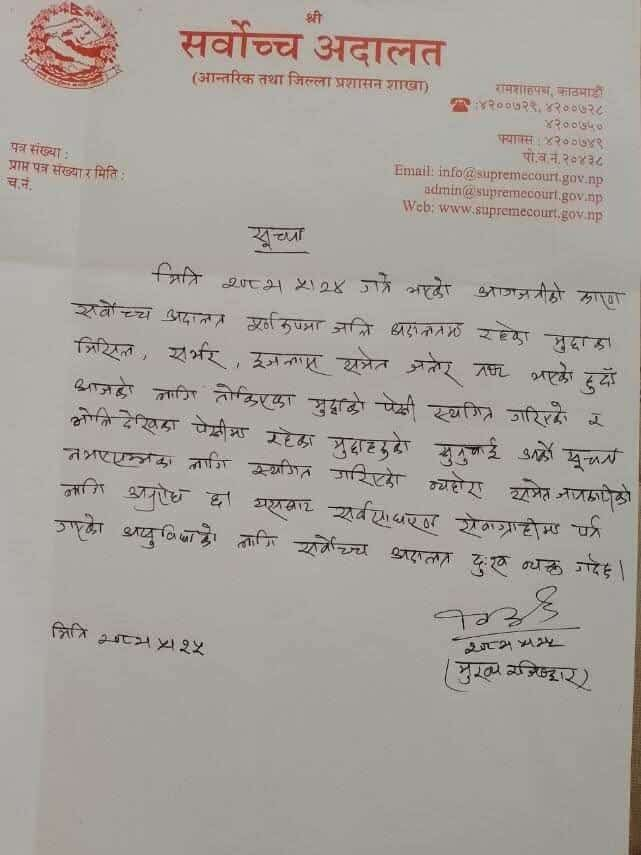 श्री
सर्वोच्च अदालत
(आन्तरिक तथा जिल्ला प्रशासन शाखा)
रामशाहपथ, काठमाडौं
☎:४२००७२९, ४२००७२८
४२००७५०
फ्याक्स : ४२००७४९
पो.ब.नं.२०४३८
Email: info@supremecourt.gov.np
admin@supremecourt.gov.np
Web: www.supremecourt.gov.np
पत्र संख्या :
प्राप्त पत्र संख्या र मिति :
च.नं.
सूचना
मिति २०८२।५।२४ गते भएको आगजनीको कारण
सर्वोच्च अदालत पूर्णरूपमा जली अदालतमा रहेका मुद्दाका
मिसिल, सर्भर, इजलास समेत जलेर नष्ट भएको हुदाँ
आजको लागि तोकिएका मुद्दाको पेशी स्थगित गरिएको र
भोलि देखिका पेशीमा रहेका मुद्दाहरुको सुनुवाई अर्को सूचना
नभएसम्मका लागि स्थगित गरिएको व्यहोरा समेत जानकारीको
लागि अनुरोध छ। यसबाट सर्वसाधारण सेवाग्राहीमा पर्न
गएको असुविधाको लागि सर्वोच्च अदालत दुःख व्यक्त गर्दछ।
मिति २०८२।५।२५
२०८२।५।२५
(मुख्य रजिष्ट्रार)